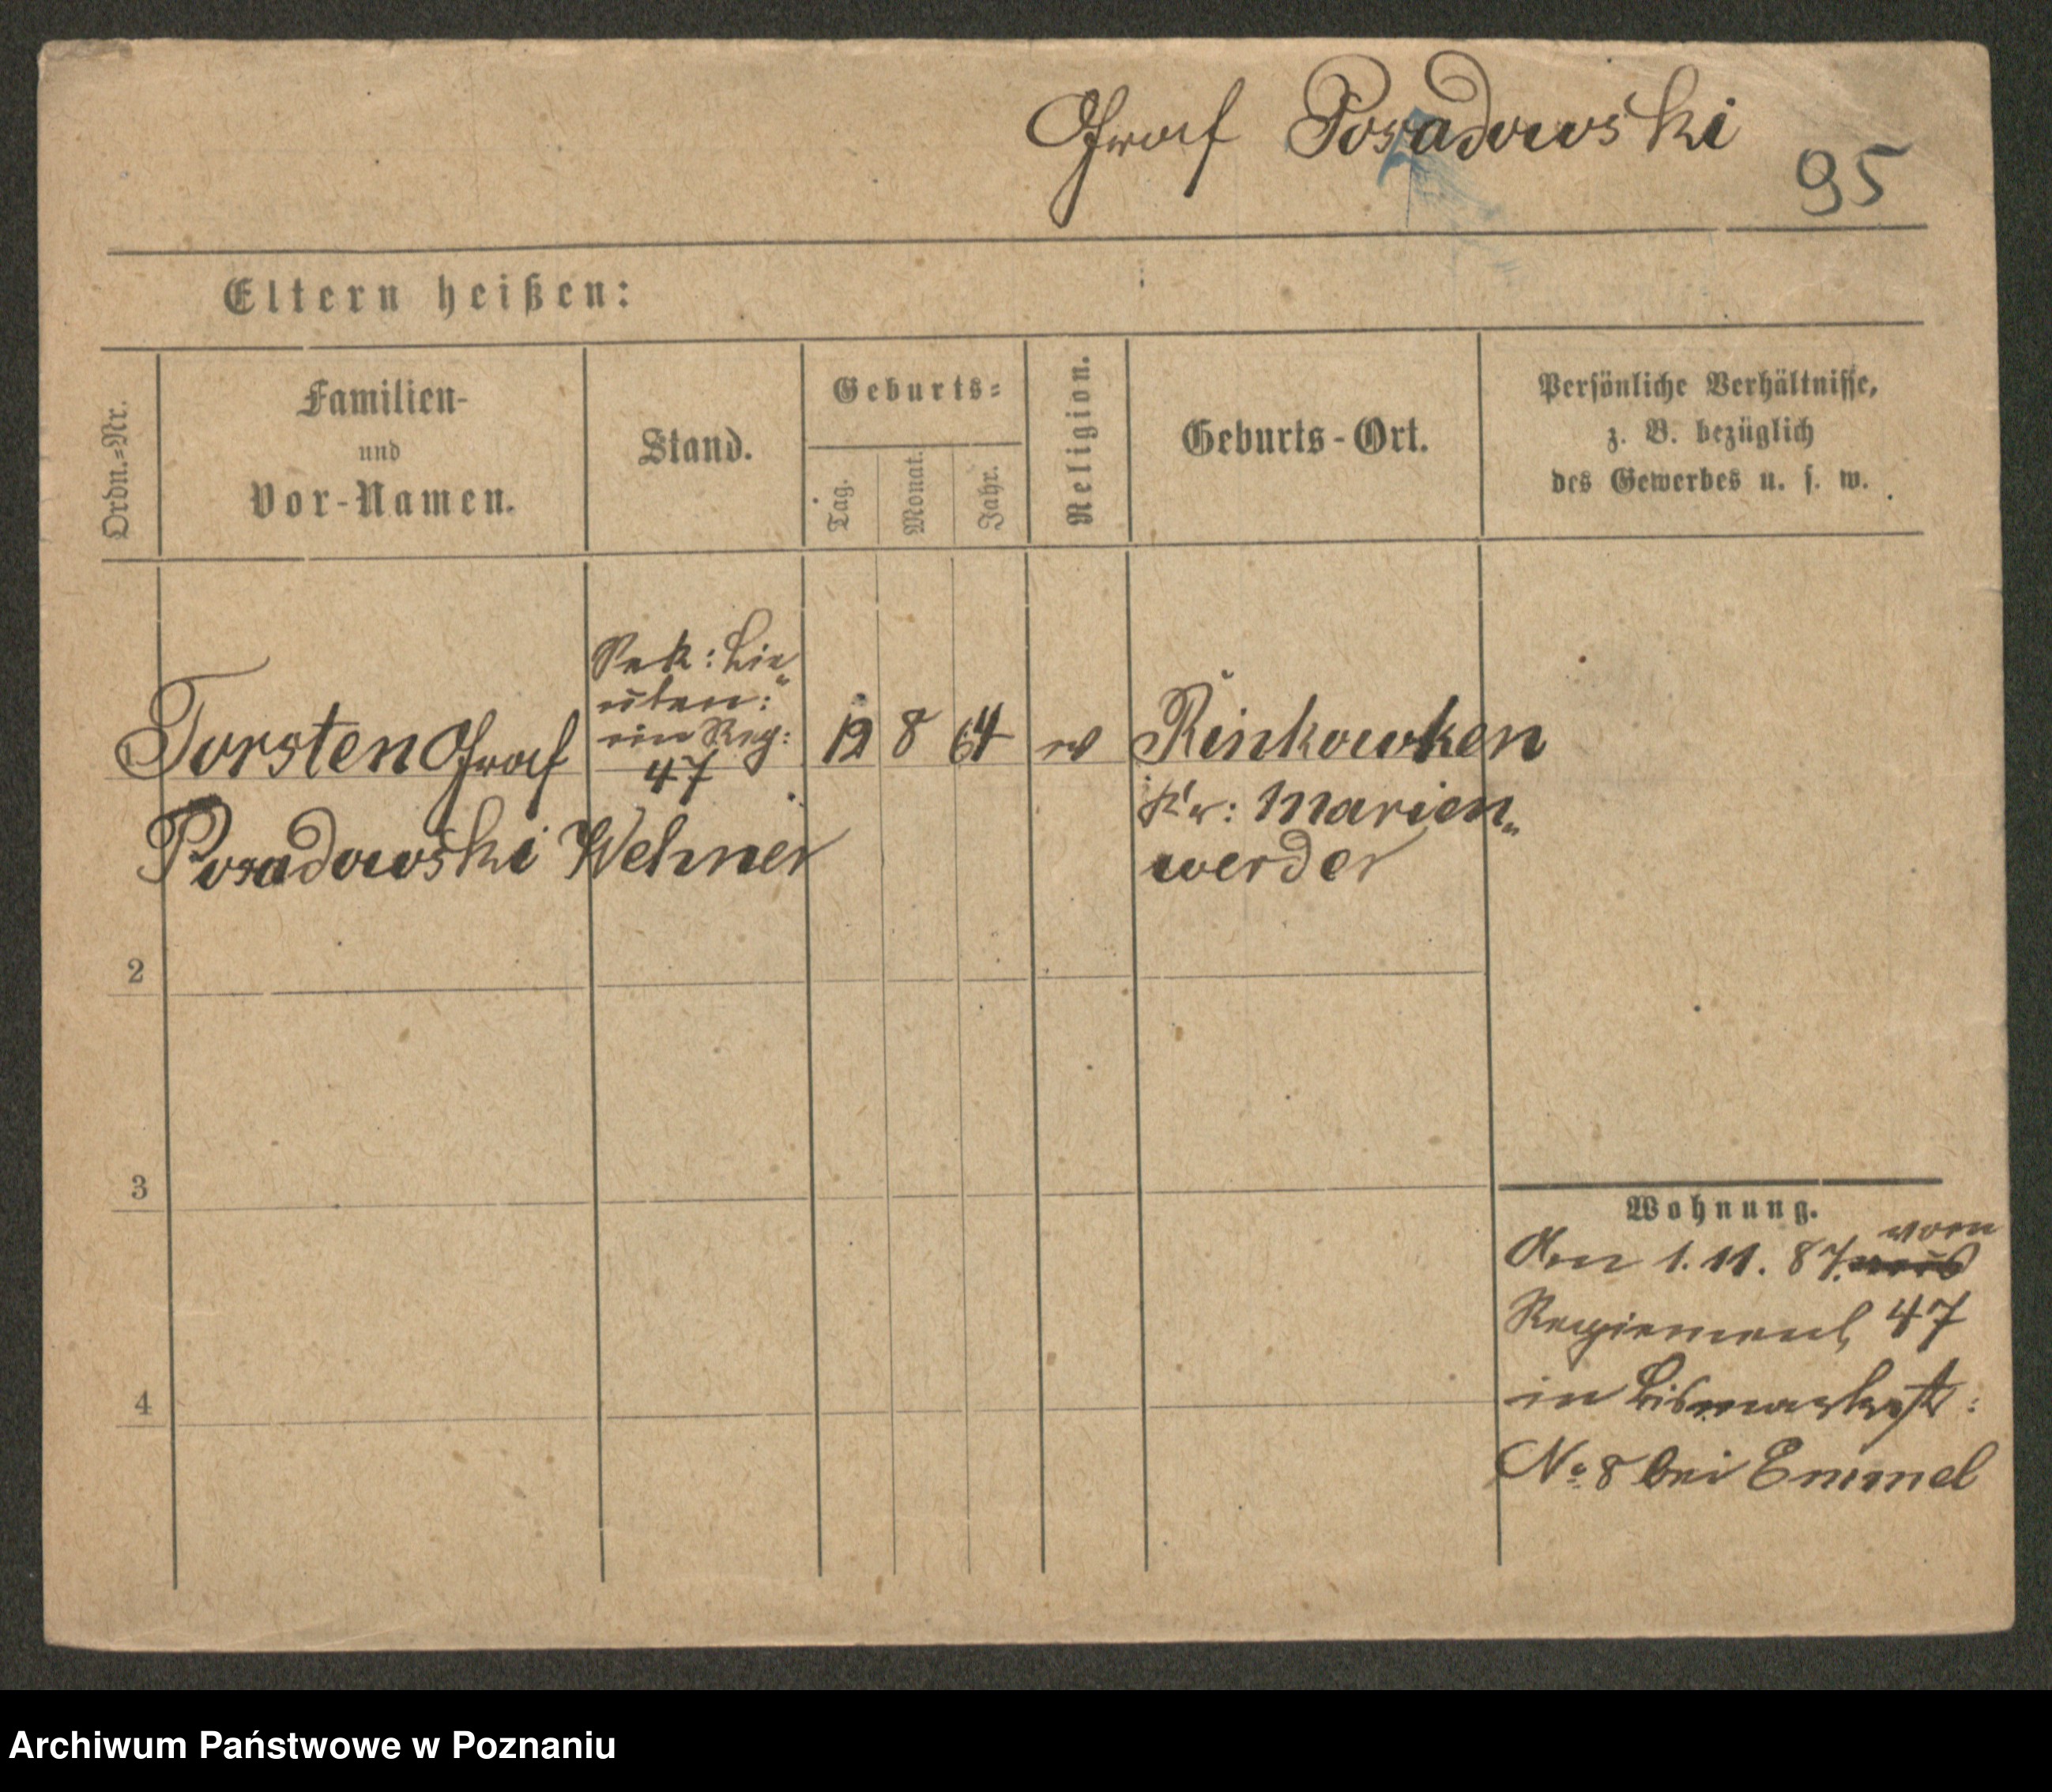 Graf Posadowski
95
Eltern heißen:
Ordn.=Nr.
Familien-
und
Vor-Namen.
Stand.
Geburts=
Tag.
Monat.
Jahr.
Religion.
Geburts-Ort.
Persönliche Verhältnisse,
z. B. bezüglich
des Gewerbes u. s. w.
Torsten Graf
Posadowski Wehner
Sek: Lie„
uten:
im Reg:
47
19 8 64
ev
Rinkowken
Kr: Marien„
werder
2
3
4
Wohnung.
Den 1. 11. 87. vom
Regiement 47
in Bismarkst:
No 8 bei Emmel
Archiwum Państwowe w Poznaniu